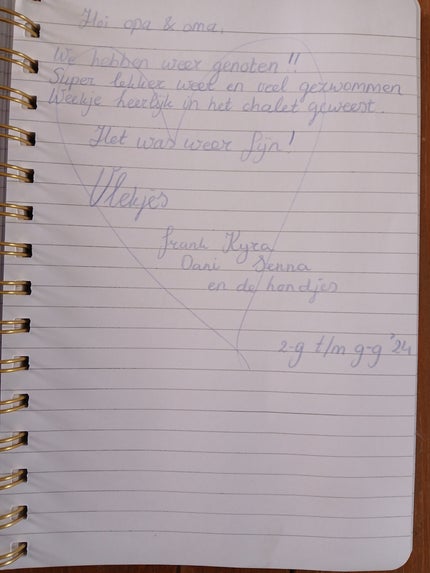 Hoi opa & oma,
We hebben weer genoten!!
Super lekker weer en veel gezwommen
Weekje heerlijk in het chalet geweest.
Het was weer fijn!
Vlekjes
Frank Kyra
Dani Senna
en de hondjes
2-9 t/m 9-9 '24